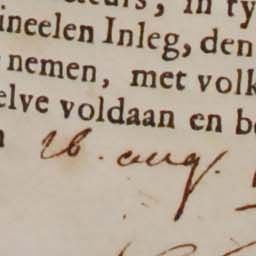 in ty
ineelen Inleg, den
nemen, met volk
elve voldaan en be
16. aug.